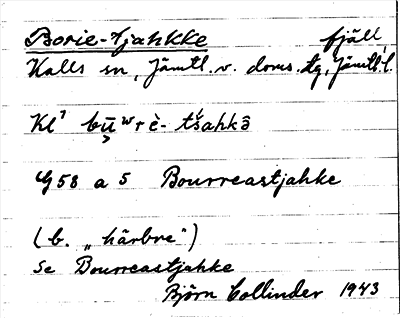 Borie-tjahkke fjäll
Kalls sn, Jämtl. v. doms. tg, Jämtl. l.
Kl⁷ būʷrè- tśahkə̂
G 58 a 5 Bourreastjahke
(b. „härbre")
Se Bourreastjahke
Björn Collinder 1943